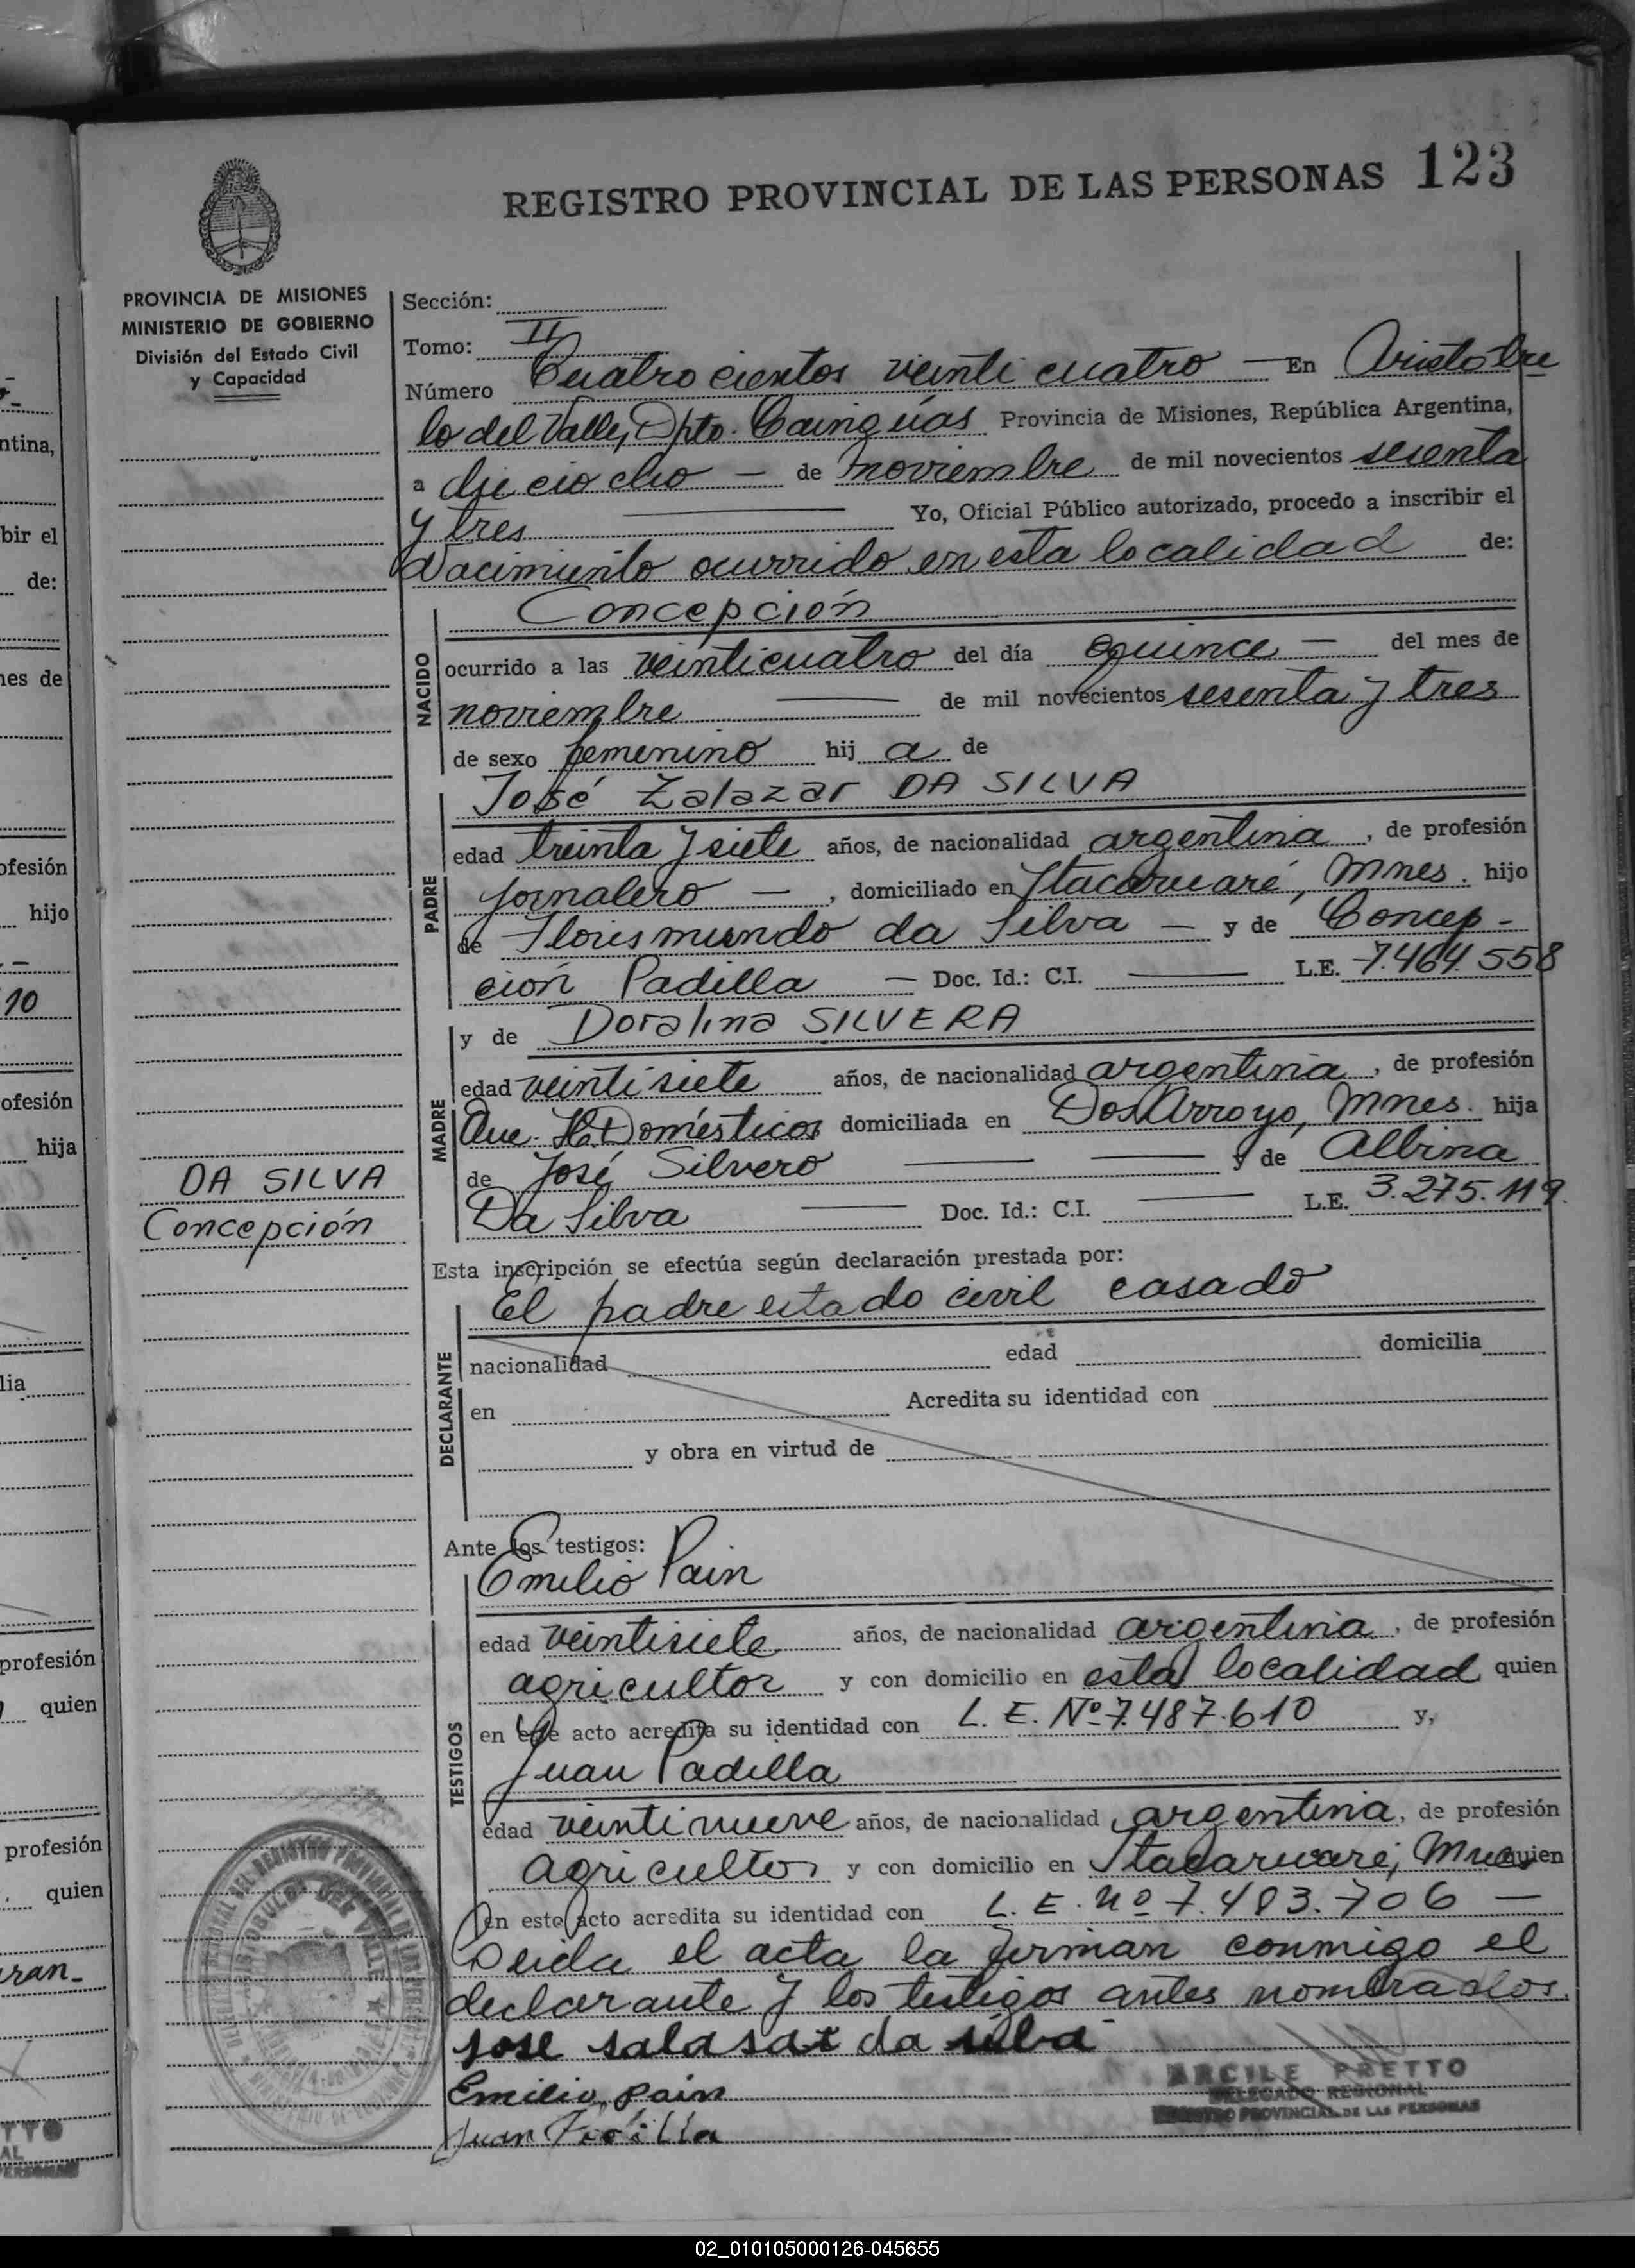 REGISTRO PROVINCIAL DE LAS PERSONAS 123
PROVINCIA DE MISIONES
MINISTERIO DE GOBIERNO
División del Estado Civil
y Capacidad
Sección:
Tomo: II
Número Cuatrocientos veinticuatro — En Aristóbu
lo del Valle, Dpto. Cainguás Provincia de Misiones, República Argentina,
a dieciocho — de noviembre de mil novecientos sesenta
y tres Yo, Oficial Público autorizado, procedo a inscribir el
Nacimiento ocurrido en esta localidad de:
NACIDO
Concepción
ocurrido a las veinticuatro del día quince — del mes de
noviembre — de mil novecientos sesenta y tres
de sexo femenino hij a de
PADRE
José Zalazar DA SILVA
edad treinta y siete años, de nacionalidad argentina, de profesión
jornalero —, domiciliado en Itacaruaré, Mnes. hijo
de Florismundo da Silva — y de Concep-
ción Padilla — Doc. Id.: C.I. — L.E. 7.464.558
MADRE
y de Doralina SILVERA
edad veintisiete años, de nacionalidad argentina, de profesión
Que. H. Domésticos domiciliada en Dos Arroyo, Mnes. hija
de José Silvero — y de Albina
Da Silva — Doc. Id.: C.I. — L.E. 3.275.119.
DA SILVA
Concepción
Esta inscripción se efectúa según declaración prestada por:
DECLARANTE
El padre estado civil casado
nacionalidad edad domicilia
en Acredita su identidad con
y obra en virtud de
Ante los testigos:
TESTIGOS
Emilio Pain
edad veintisiete años, de nacionalidad argentina, de profesión
agricultor y con domicilio en esta localidad quien
en este acto acredita su identidad con L. E. Nº 7.487.610 y,
Juan Padilla
edad veintinueve años, de nacionalidad argentina, de profesión
agricultor y con domicilio en Itacaruaré, Mnes quien
en este acto acredita su identidad con L. E. Nº 7.483.706 —
Leida el acta la firman conmigo el
declarante y los testigos antes nombrados.
Jose salasar da silba
Emilio pain
Juan
ARCILE PRETTO
DELEGADO REGIONAL
REGISTRO PROVINCIAL DE LAS PERSONAS
02_010105000126-045655